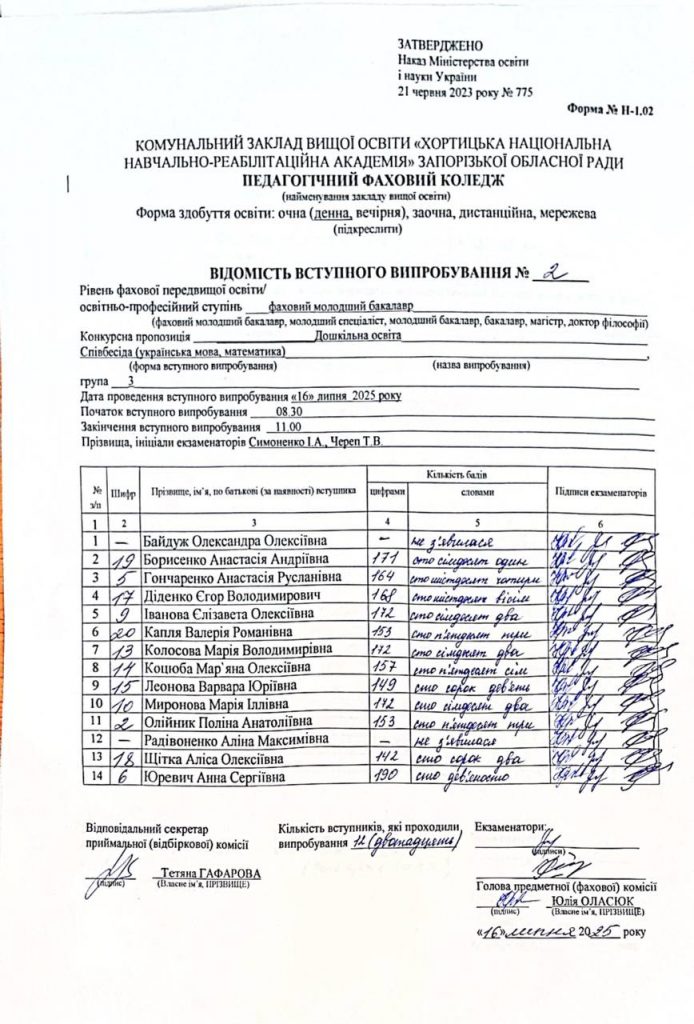 ЗАТВЕРДЖЕНО
Наказ Міністерства освіти
і науки України
21 червня 2023 року № 775
Форма № Н-1.02
КОМУНАЛЬНИЙ ЗАКЛАД ВИЩОЇ ОСВІТИ «ХОРТИЦЬКА НАЦІОНАЛЬНА
НАВЧАЛЬНО-РЕАБІЛІТАЦІЙНА АКАДЕМІЯ» ЗАПОРІЗЬКОЇ ОБЛАСНОЇ РАДИ
ПЕДАГОГІЧНИЙ ФАХОВИЙ КОЛЕДЖ
(найменування закладу вищої освіти)
Форма здобуття освіти: очна (денна, вечірня), заочна, дистанційна, мережева
(підкреслити)
ВІДОМІСТЬ ВСТУПНОГО ВИПРОБУВАННЯ № 2
Рівень фахової передвищої освіти/
освітньо-професійний ступінь фаховий молодший бакалавр
(фаховий молодший бакалавр, молодший спеціаліст, молодший бакалавр, бакалавр, магістр, доктор філософії)
Конкурсна пропозиція Дошкільна освіта
Співбесіда (українська мова, математика)
(форма вступного випробування) (назва випробування)
група 3
Дата проведення вступного випробування «16» липня 2025 року
Початок вступного випробування 08.30
Закінчення вступного випробування 11.00
Прізвища, ініціали екзаменаторів Симоненко І.А., Череп Т.В.
№ з/п Шифр Прізвище, ім'я, по батькові (за наявності) вступника Кількість балів цифрами словами Підписи екзаменаторів
1 2 3 4 5 6
1 – Байдуж Олександра Олексіївна – не з'явилася
2 19 Борисенко Анастасія Андріївна 171 сто сімдесят один
3 5 Гончаренко Анастасія Русланівна 164 сто шістдесят чотири
4 17 Діденко Єгор Володимирович 168 сто шістдесят вісім
5 9 Іванова Єлізавета Олексіївна 172 сто сімдесят два
6 20 Капля Валерія Романівна 153 сто п'ятдесят три
7 13 Колосова Марія Володимирівна 172 сто сімдесят два
8 14 Коцюба Мар'яна Олексіївна 157 сто п'ятдесят сім
9 15 Леонова Варвара Юріївна 149 сто сорок дев'ять
10 10 Миронова Марія Іллівна 172 сто сімдесят два
11 2 Олійник Поліна Анатоліївна 153 сто п'ятдесят три
12 – Радівоненко Аліна Максимівна – не з'явилася
13 18 Щітка Аліса Олексіївна 142 сто сорок два
14 6 Юревич Анна Сергіївна 190 сто дев'яносто
Відповідальний секретар
приймальної (відбіркової) комісії
(підпис) Тетяна ГАФАРОВА
(Власне ім'я, ПРІЗВИЩЕ)
Кількість вступників, які проходили
випробування 12 (дванадцять)
Екзаменатори:
(підписи)
Голова предметної (фахової) комісії
Юлія ОЛАСЮК
(підпис) (Власне ім'я, ПРІЗВИЩЕ)
«16» липня 2025 року